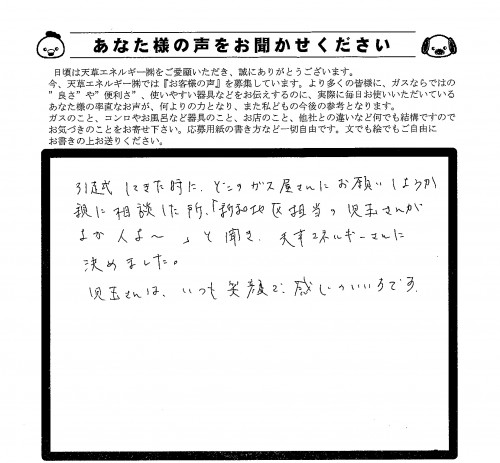 あなた様の声をお聞かせください
日頃は天草エネルギー㈱をご愛顧いただき、誠にありがとうございます。
今、天草エネルギー㈱では『お客様の声』を募集しています。より多くの皆様に、ガスならではの
”良さ”や”便利さ”、使いやすい器具などをお伝えするのに、実際に毎日お使いいただいている
あなた様の率直なお声が、何よりの力となり、また私どもの今後の参考となります。
ガスのこと、コンロやお風呂など器具のこと、お店のこと、他社との違いなど何でも結構ですので
お気づきのことをお寄せ下さい。応募用紙の書き方など一切自由です。文でも絵でもご自由に
お書きの上お送りください。
引越してきた時に、どこのガス屋さんにお願いしようか
親に相談した所、「新和地区担当の児玉さんが
よか人よ〜」と聞き、天草エネルギーさんに
決めました。
児玉さんは、いつも笑顔で、感じのいい方です。